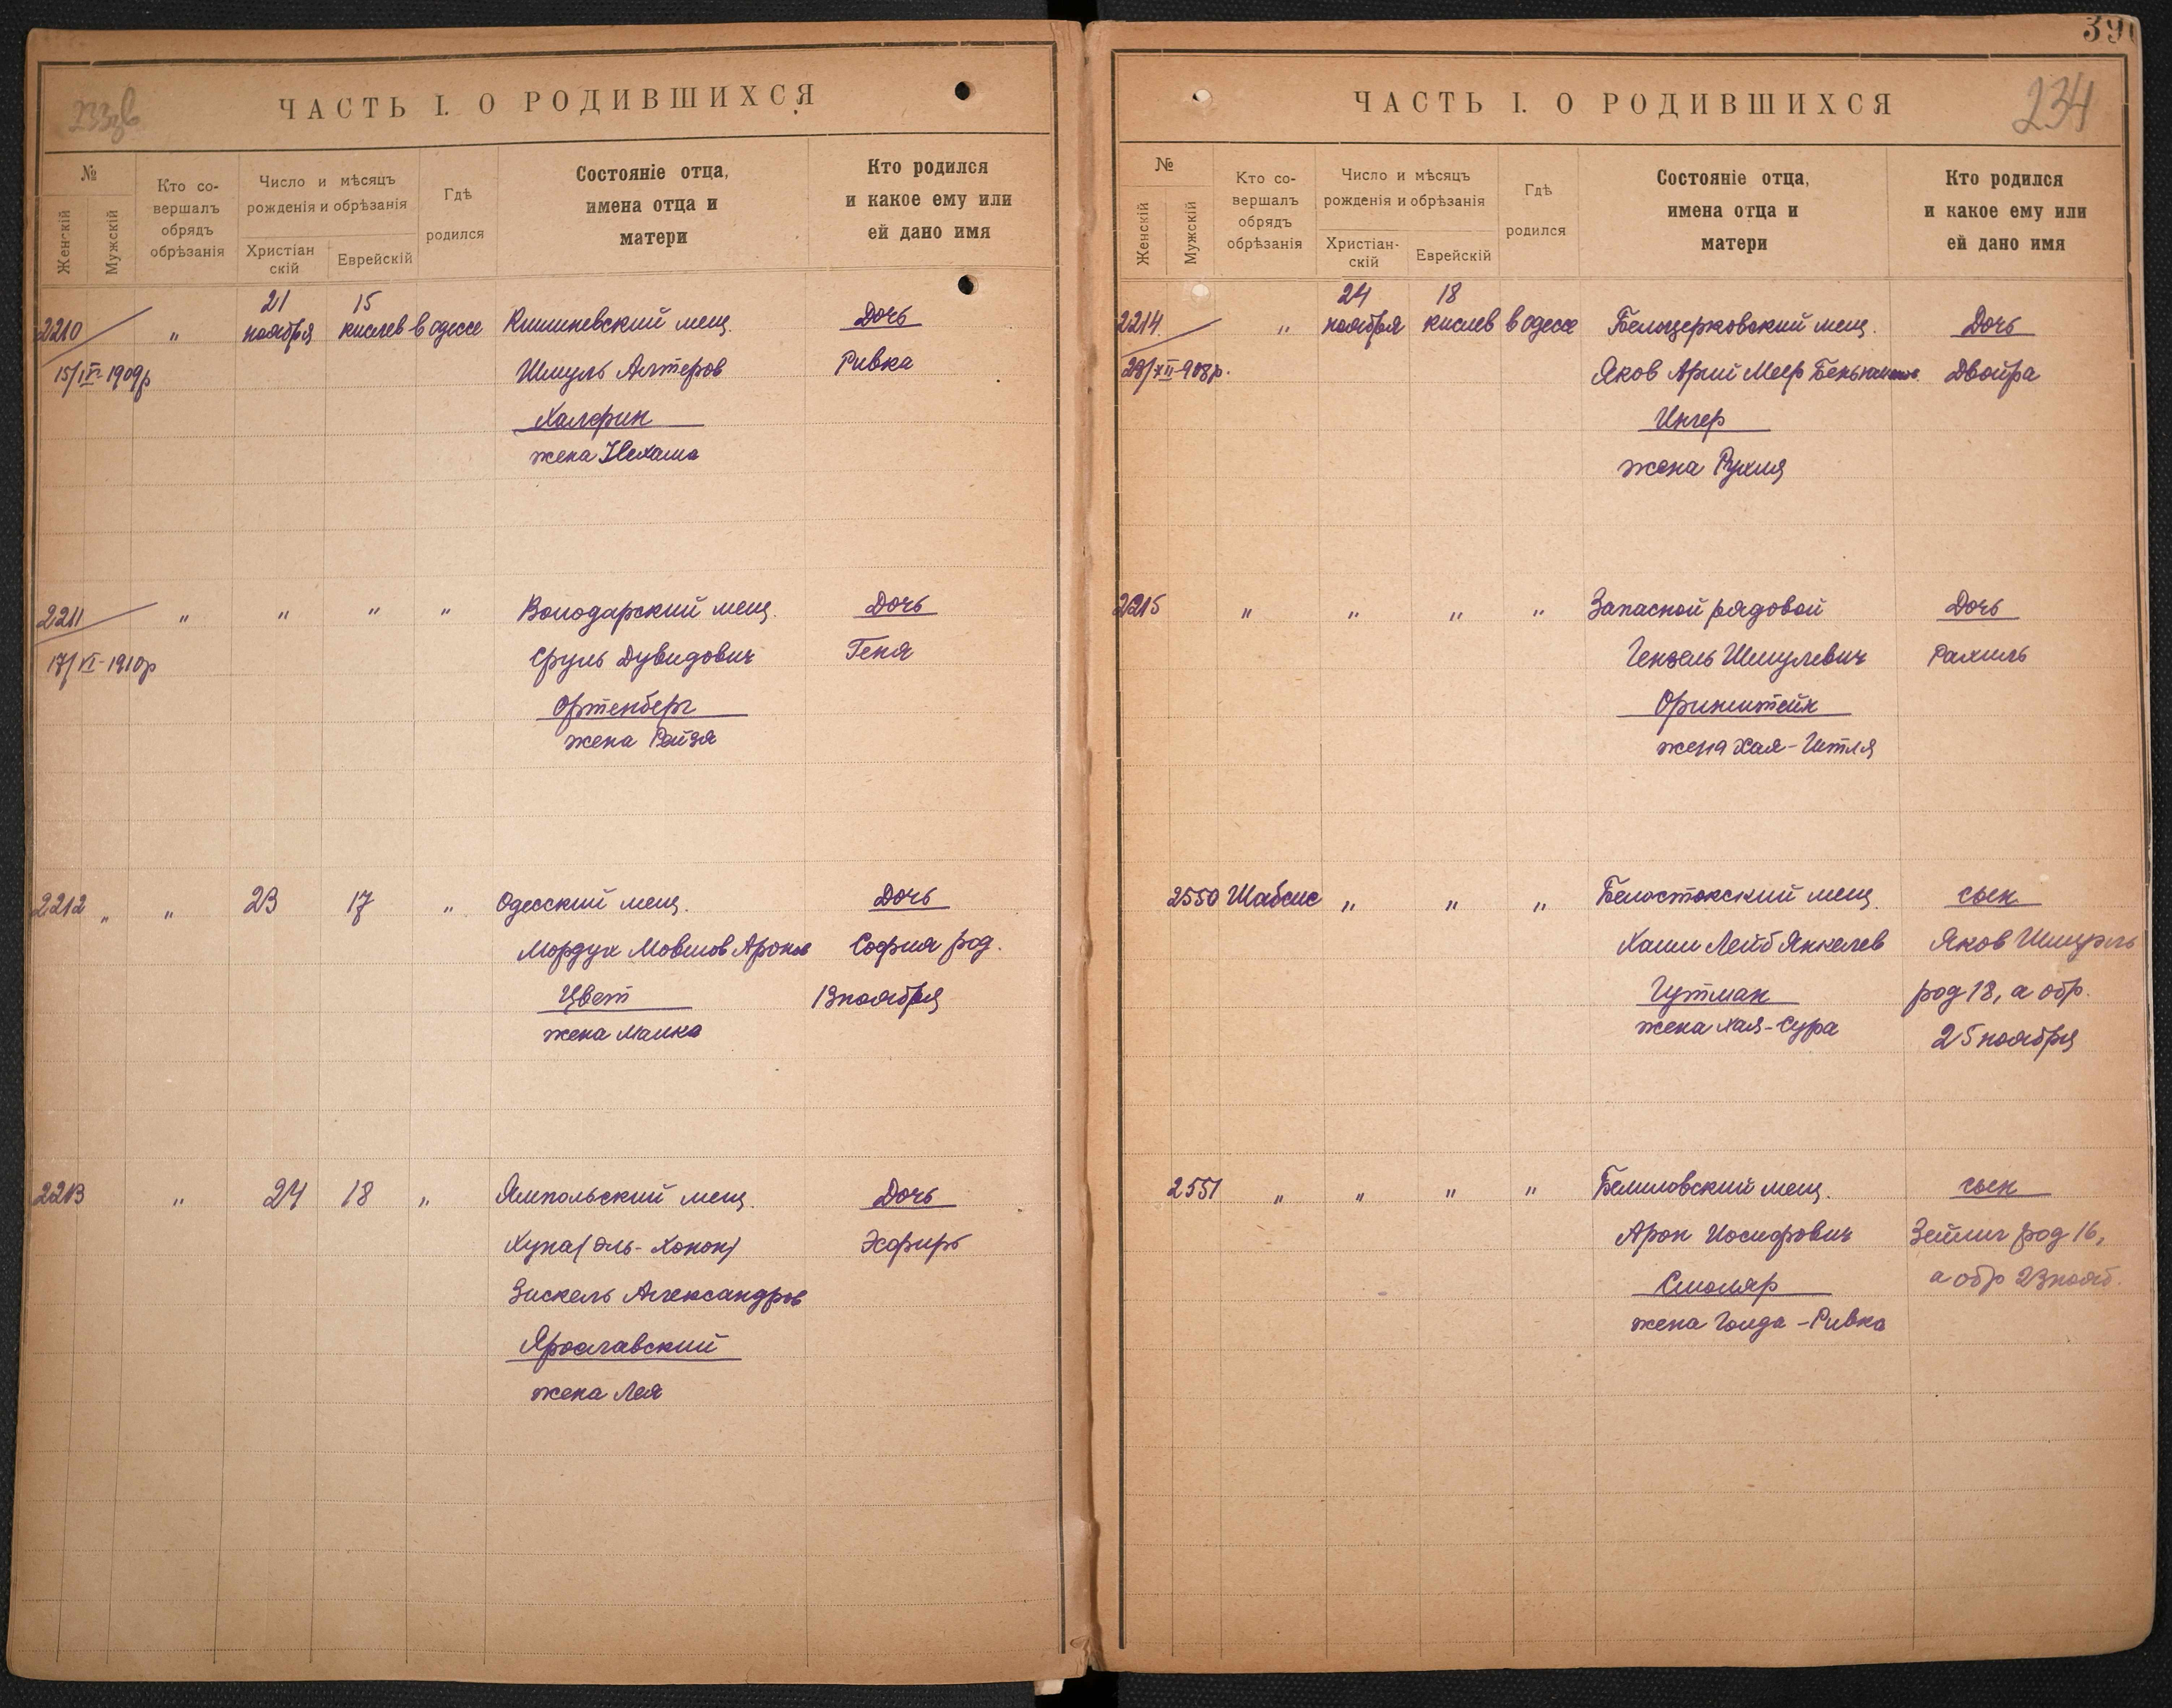 ЧАСТЬ I. О РОДИВШИХСЯ
№
Женскій
Мужскій
Кто со-
вершалъ
обрядъ
обрѣзанія
Число и мѣсяцъ
рожденія и обрѣзанія
Христіан
скій
Еврейскій
Гдѣ
родился
Состояніе отца,
имена отца и
матери
Кто родился
и какое ему или
ей дано имя
21 15
2210 " ноября кислев в одессе Кишиневский мещ. Дочь
15/IV-1909р Шмуль Алтеров Ривка
Халфин
жена Нехама
2211 " " " " Володарский мещ. Дочь
17/VI-1910р Сруль Дувидович Геня
Ортенберг
жена Рейзя
2212 " " 23 17 " Одесский мещ. Дочь
Мордух Мовшов Аронов София род.
Цвет 13 ноября
жена Малка
2213 " 24 18 " Ямпольский мещ. Дочь
Хуна (Эль-Хонон) Эсфирь
Зискель Александров
Ярославский
жена Лея
390
ЧАСТЬ I. О РОДИВШИХСЯ
234
№
Женскій
Мужскій
Кто со-
вершалъ
обрядъ
обрѣзанія
Число и мѣсяцъ
рожденія и обрѣзанія
Христіан-
скій
Еврейскій
Гдѣ
родился
Состояніе отца,
имена отца и
матери
Кто родился
и какое ему или
ей дано имя
24 18
2214 " ноября кислев в одессе Белоцерковский мещ. Дочь
29/XII-908р. Яков Арий Меер Двойра
Ингер
жена Рухля
2215 " " " " Запасной рядовой Дочь
Гензель Шмулевич Рахиль
Оринштейн
жена Хая-Гитля
2550 Шабсис " " " Белостокский мещ. сын
Хаим Лейб Янкелев Яков Шмуэль
Гутман род 18, а обр.
жена Хая-Сура 25 ноября
2551 " " " " Белиловский мещ. сын
Арон Иосифович Зейлиг род 16,
Смоляр а обр 23 нояб.
жена Голда-Ривка